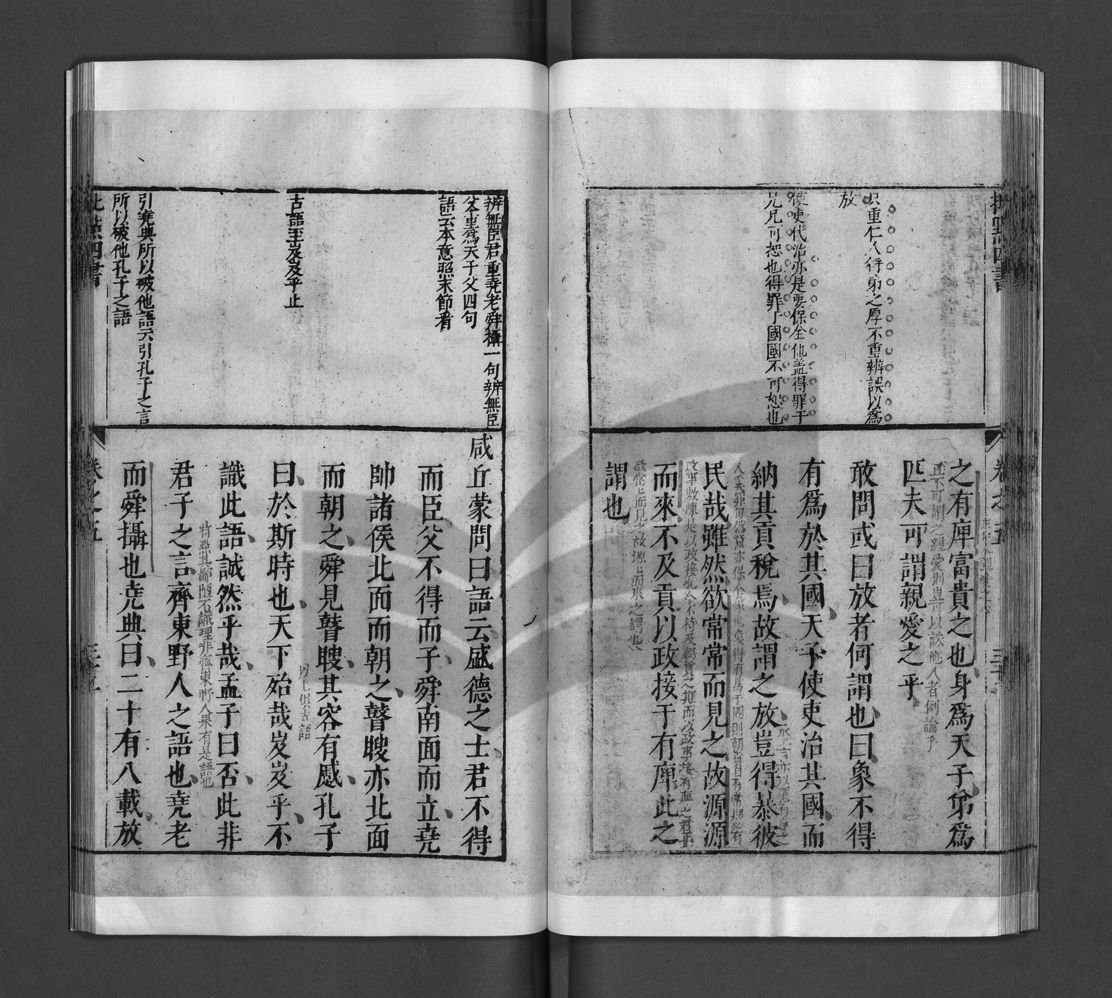 只重仁人待弟之厚不重辨誤以為
放
使吏代治亦是要保全他蓋得罪于
兄兄可恕也得罪于國國不可恕也
卷之五
之有庳富貴之也身爲天子弟爲
匹夫可謂親愛之乎
敢問或曰放者何謂也曰象不得
有爲於其國天子使吏治其國而
納其貢稅焉故謂之放豈得暴彼
民哉雖然欲常常而見之故源源
而來不及貢以政接于有庳此之
謂也
辨無臣君重堯老舜攝一句辨無臣
父重爲天子父四句
語云本意照末節看
古語至岌岌乎止
引堯典所以破他語云引孔子之言
所以破他孔子之語
咸丘蒙問曰語云盛德之士君不得
而臣父不得而子舜南面而立堯
帥諸侯北面而朝之瞽瞍亦北面
而朝之舜見瞽瞍其容有蹙孔子
曰於斯時也天下殆哉岌岌乎不
以上俱古語
識此語誠然乎哉孟子曰否此非
君子之言齊東野人之語也堯老
而舜攝也堯典曰二十有八載放
批點四書
卷之五